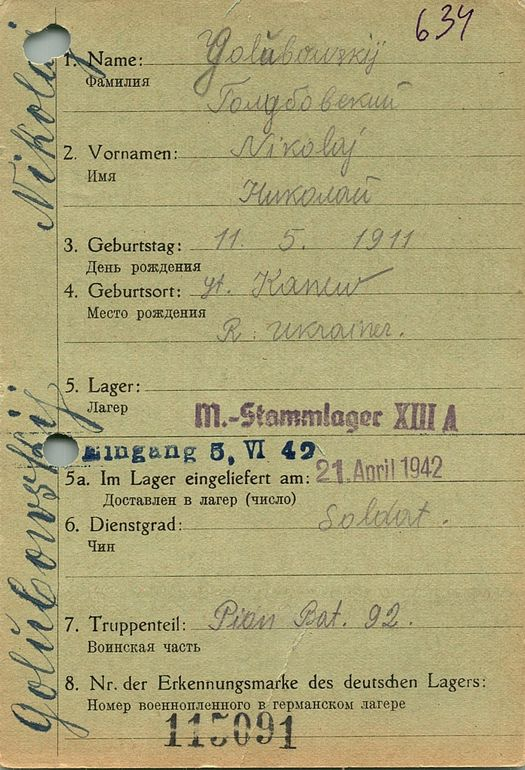 634
1. Name: Golubowskij
Фамилия
Голубовский
2. Vornamen: Nikolaj
Имя
Николай
3. Geburtstag: 11. 5. 1911
День рождения
4. Geburtsort: st. Kanew
Место рождения
R: Ukrainer.
5. Lager:
Лагер
M.-Stammlager XIII A
Eingang 5, VI 42
5a. Im Lager eingeliefert am: 21. April 1942
Доставлен в лагер (число)
6. Dienstgrad: Soldat.
Чин
7. Truppenteil: Pion Bat. 92.
Воинская часть
8. Nr. der Erkennungsmarke des deutschen Lagers:
Номер военнопленного в германском лагере
115091
Golubowskij Nikolaj